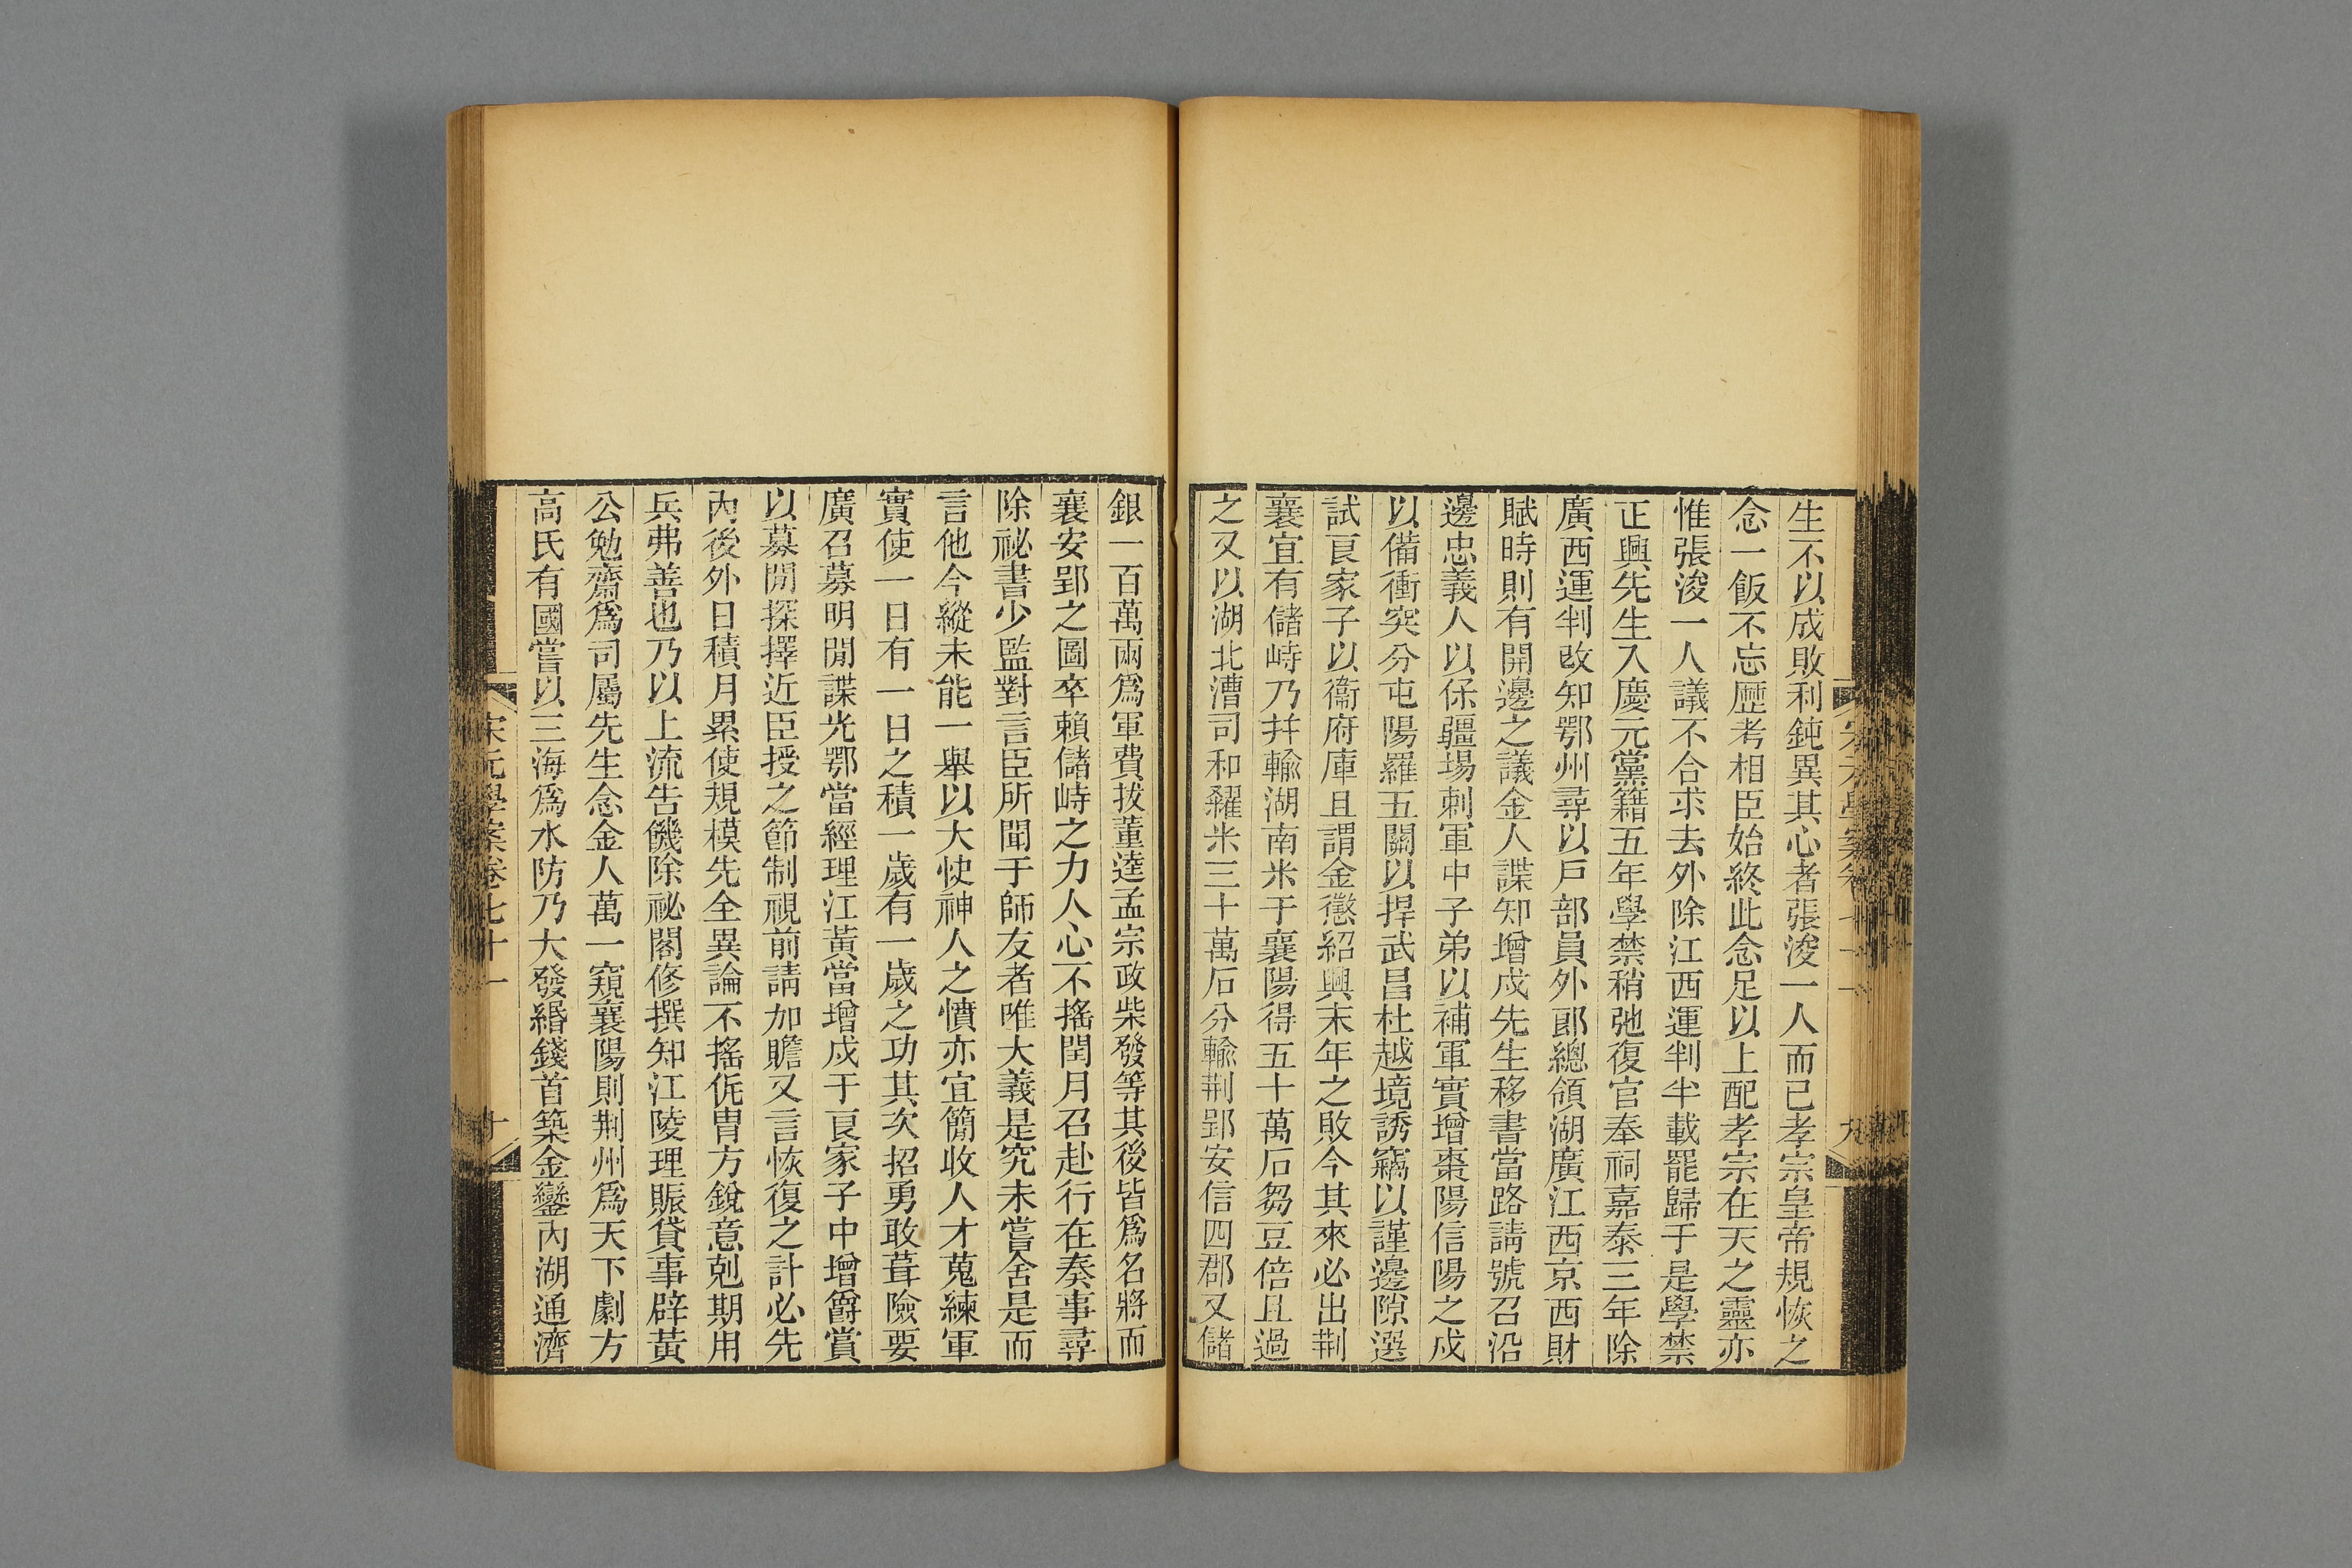 生不以成敗利鈍異其心者張浚一人而已孝宗皇帝規恢之
念一飯不忘歷考相臣始終此念足以上配孝宗在天之靈亦
惟張浚一人議不合求去外除江西運判半載罷歸于是學禁
正興先生入慶元黨籍五年學禁稍弛復官奉祠嘉泰三年除
廣西運判改知鄂州尋以戶部員外郎總領湖廣江西京西財
賦時則有開邊之議金人諜知增戍先生移書當路請號召沿
邊忠義人以保疆場刺軍中子弟以補軍實增棗陽信陽之戍
以備衝突分屯陽羅五關以捍武昌杜越境誘竊以謹邊隙選
試良家子以衞府庫且謂金懲紹興末年之敗今其來必出荆
襄宜有儲峙乃幷輸湖南米于襄陽得五十萬石芻豆倍且過
之又以湖北漕司和糴米三十萬石分輸荆郢安信四郡又儲
銀一百萬兩爲軍費拔董逵孟宗政柴發等其後皆爲名將而
襄安郢之圖卒賴儲峙之力人心不搖閏月召赴行在奏事尋
除祕書少監對言臣所聞于師友者唯大義是究未嘗舍是而
言他今縱未能一舉以大快神人之憤亦宜簡收人才蒐練軍
實使一日有一日之積一歲有一歲之功其次招勇敢葺險要
廣召募明閒諜光鄂當經理江黃當增戍于良家子中增爵賞
以募閒探擇近臣授之節制視前請加贍又言恢復之計必先
內後外日積月累使規模先全異論不搖侂冑方銳意剋期用
兵弗善也乃以上流告饑除祕閣修撰知江陵理賑貸事辟黃
公勉齋爲司屬先生念金人萬一窺襄陽則荆州爲天下劇方
高氏有國嘗以三海爲水防乃大發緡錢首築金鑾內湖通濟
宋元學案卷七十一
十